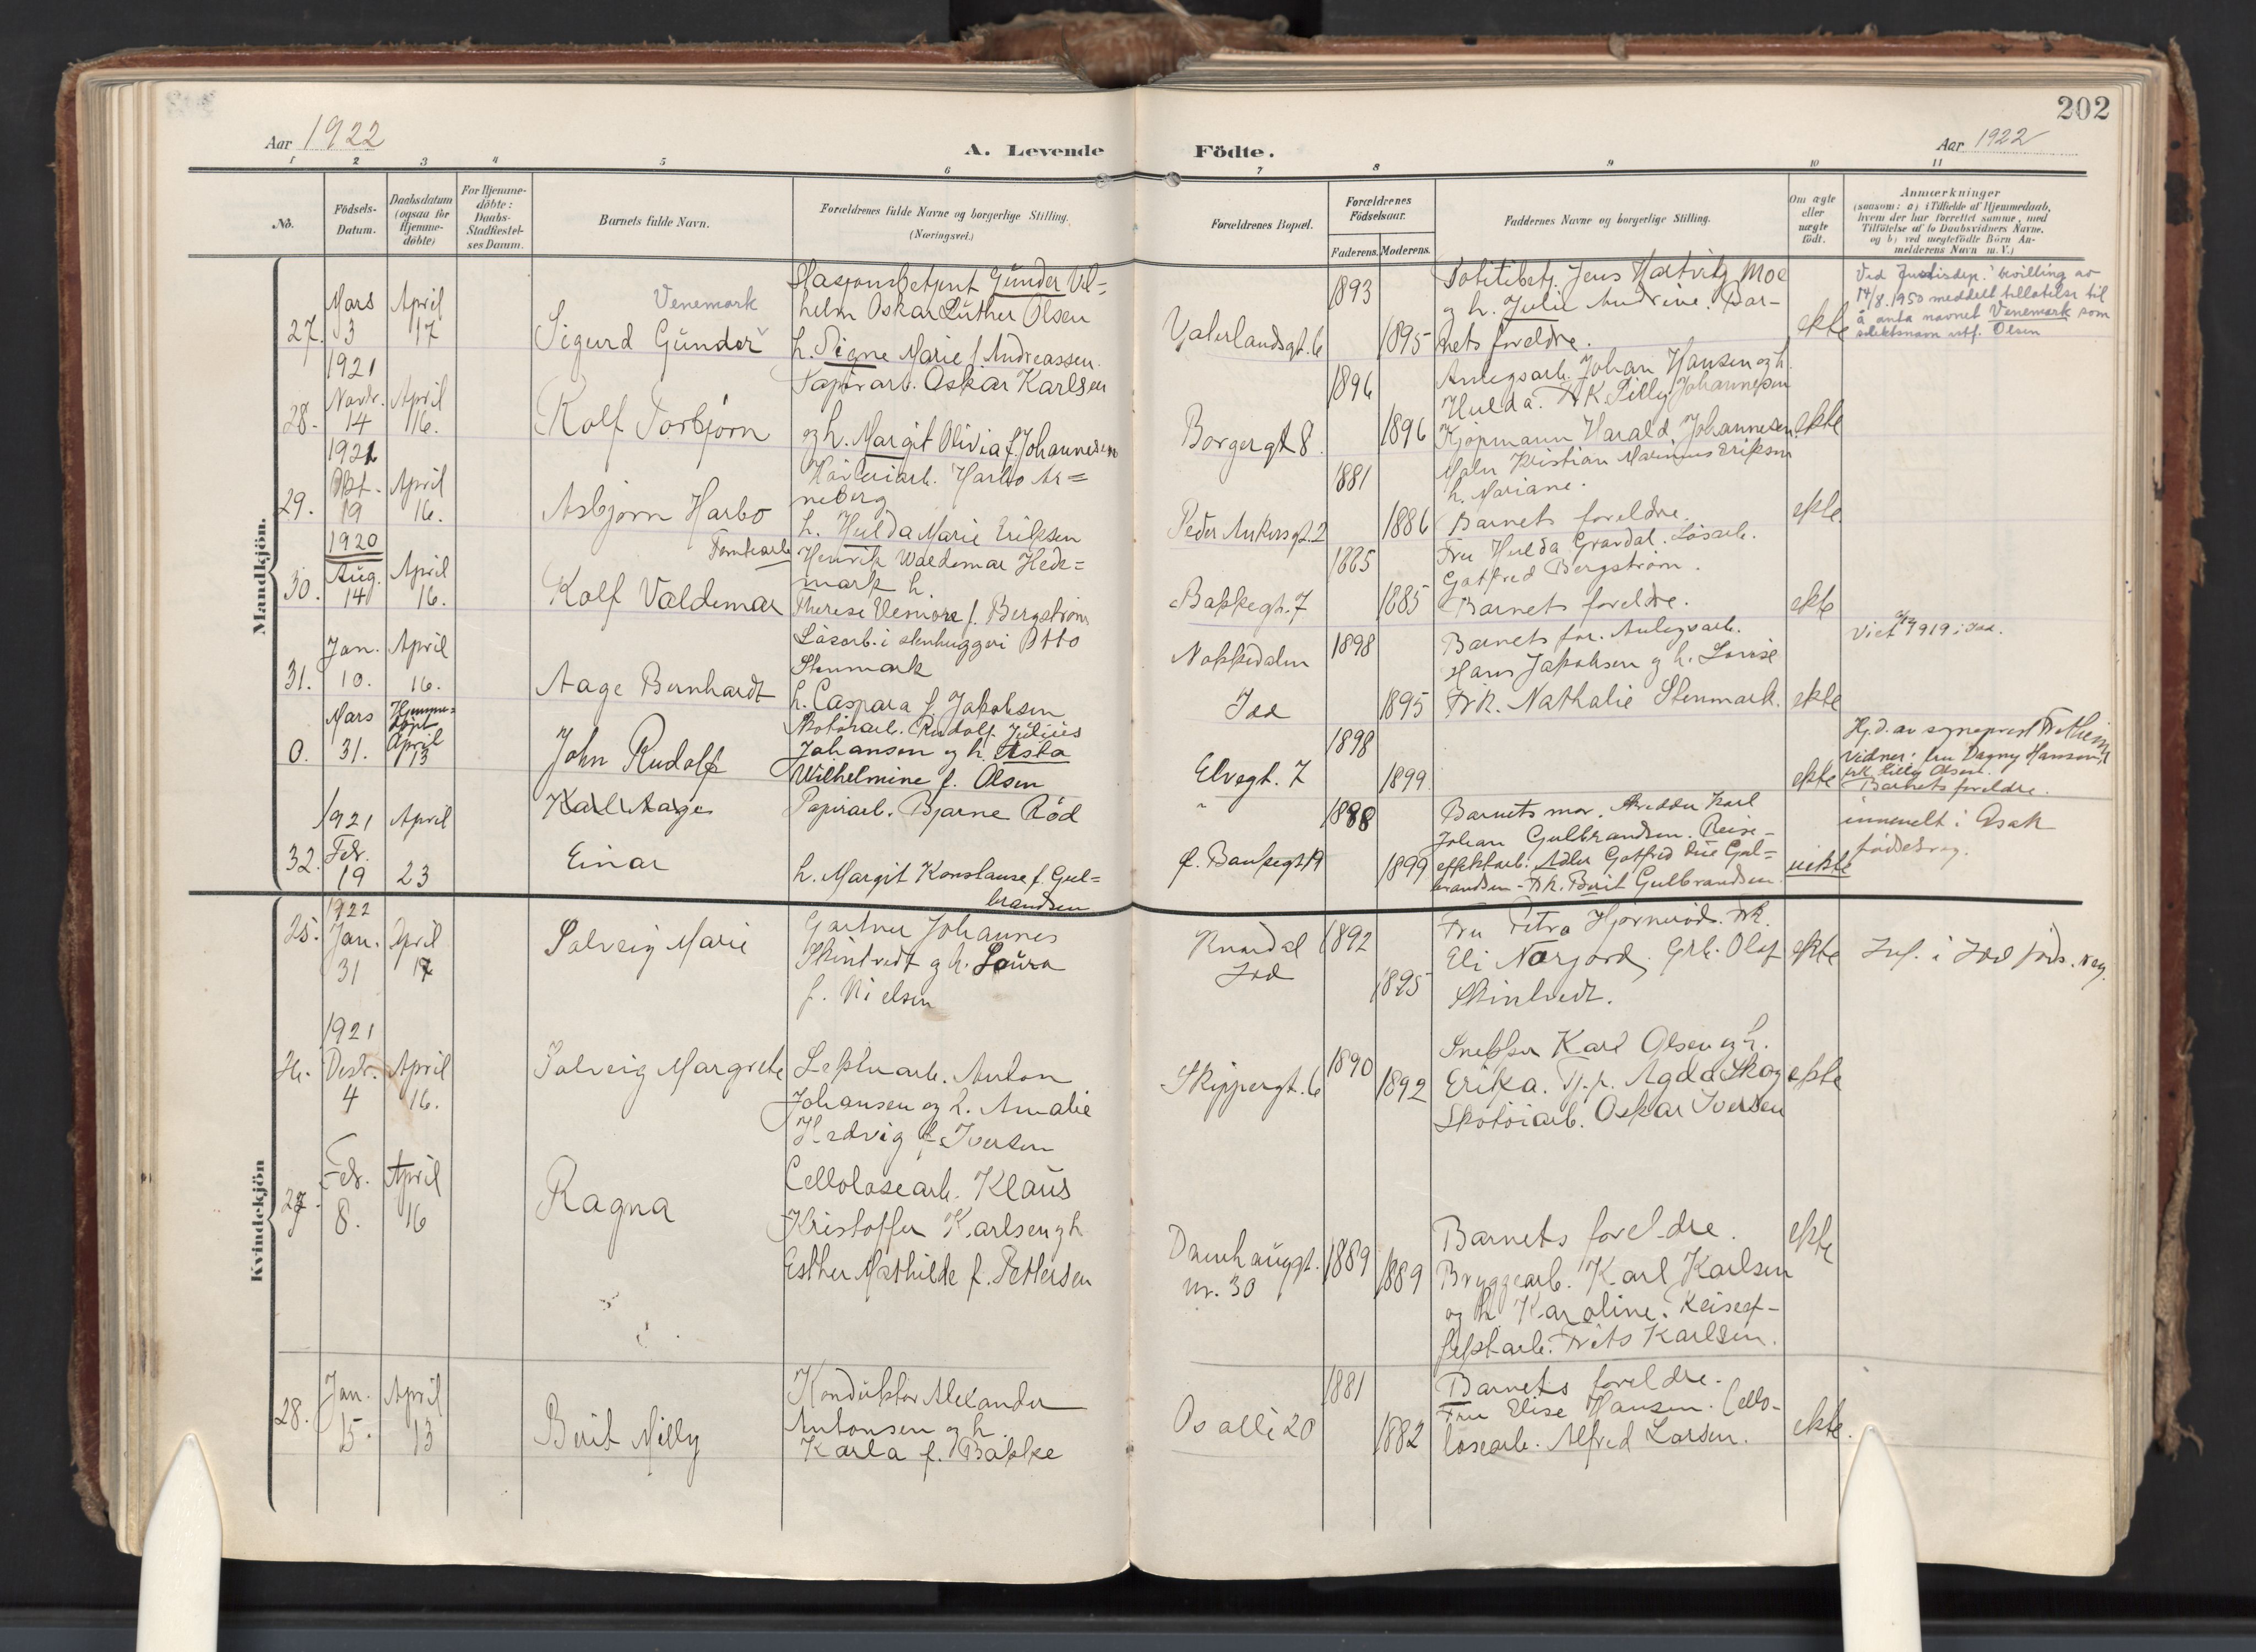 202
Aar 1922
A. Levende Födte.
Aar 1922
1 2 3 4 5 6 7 8 9 10 11
No.
Födsels-
Datum.
Daabsdatum
(ogsaa for
Hjemme-
döbte)
For Hjemme-
döbte:
Daabs-
Stadfæstel-
ses Datum.
Barnets fulde Navn.
Forældrenes fulde Navne og borgerlige Stilling.
(Næringsvei.)
Forældrenes Bopæl.
Forældrenes
Födselsaar.
Faderens. Moderens.
Faddernes Navne og borgerlige Stilling.
Om ægte
eller
uægte
født.
Anmærkninger
(saasom: a) i Tilfælde af Hjemmedaab,
hvem der har forrettet samme, med
Tilföielse af to Daabsvidners Navne.
og b) ved uegtefödte Börn An-
melderens Navn m. V.)
Mandkjön.
27.
Mars
3
April
17
Venemark
Sigurd Gunder
Stasjonsbetjent Gunder Vil=
helm Oskar Luther Olsen
h. Signe Marie f. Andreassen.
Vaterlandsgt. 6
1893
1895
Politibetj. Jens Hartvig Moe
og h. Julie Andrine. Bar-
nets foreldre.
ekte
Ved Justisdep. bevilling av
14/8.1950 meddelt tillatelse til
å anta navnet Venemark som
slektsnavn istf. Olsen
28.
1921
Novbr.
14
April
16.
Rolf Torbjørn
Papirarb. Oskar Karlsen
og h. Margit Olivia f. Johannesen
Borgergt 8.
1896
1896
Anlegsarb. Johan Hansen og h.
Hulda. Frk Lilly Johannesen
Kjøpmann Harald Johannesen
ekte
29.
1921
Okt.
19
April
16.
Asbjørn Harbo
Harbo Ar=
neberg
h. Hulda Marie Eriksen
Peder Ankersgt. 2
1881
1886
Maler Kristian Marinius Eriksen
h. Mariane.
Barnets foreldre.
ekte.
30.
1920
Aug.
14
April
16.
Rolf Valdemar
Tomtearb.
Henrik Waldemar Hede=
mark h.
Therese f. Bergstrøm
Bakkegt. 7
1885
1885
Fru Hulda Grøndal. Løsarb.
Gotfred Bergstrøm.
Barnets foreldre.
ekte
31.
Jan.
10.
April
16.
Aage Bernhardt
Løsarb. i stenhuggeri Otto
Stenmark
h. Caspara f. Jakobsen
Nokkedalen
Idd
1898
1895
Barnets for. Anlegsarb.
Hans Jakobsen og h. Lovise
Frk. Nathalie Stenmark.
ekte
Viet 1919 i Idd.
0.
Mars
31.
Hjemme=
døpt
April
13
John Rudolf
Skotøiarb. Rudolf Julius
Johansen og h. Asta
Wilhelmine f. Olsen
Elvegt. 7
1898
1899.
ekte
Hj.d. av sogneprest
Vidner: fru Dagny Hansen,
frk. Lilly Olsen.
Barnets foreldre.
32.
1921
Febr.
19
April
23
Karl Aage
Einar
Papirarb. Bjarne Rød
h. Margit Konstanse f. Gul=
brandsen
1888
1899
Barnets mor. Skredder Karl
Johan Gulbrandsen. Reise-
effektarb. Adler Gotfred Gul=
brandsen - Frk. Berit Gulbrandsen
uekte
innmeldt i Asak
fødselsreg.
Kvindekjön
25.
1922
Jan.
31
April
17
Solveig Marie
Gartner Johannes
Skintvedt og h. Laura
f. Nielsen
Remdal
Idd
1892
1895
Fru Petra Hjørnerød. Frk.
Eli Nørgard. Grb. Olaf
Skintvedt.
ekte
Inf. i Idd føds. reg.
26.
1921
Desbr.
4
April
16.
Solveig Margrete
Anton
Johansen og h. Amalie
Hedvig f. Iversen
Skippergt. 6
1890
1892
Snekker Karl Olsen og h.
Erika. Tj.p. Agda Skog
Skotøiarb. Oskar Iversen
ekte
27.
Febr.
8.
April
16
Ragna
Cellolosearb. Klaus
Kristoffer Karlsen og h
Esther Mathilde f. Pettersen
Damhauggt.
nr. 30
1889
1889
Barnets foreldre.
Bryggearb. Karl Karlsen
og h. Karoline. Reiseef-
fektarb. Frits Karlsen.
ekte
28.
Jan.
15.
April
13
Berit Milly
Konduktør Alexander
Antonsen og h.
Karla f. Bakke
Os alle 20
1881
1882
Barnets foreldre.
Fru Elise Hansen. Cello-
losearb. Alfred Larsen.
ekte.